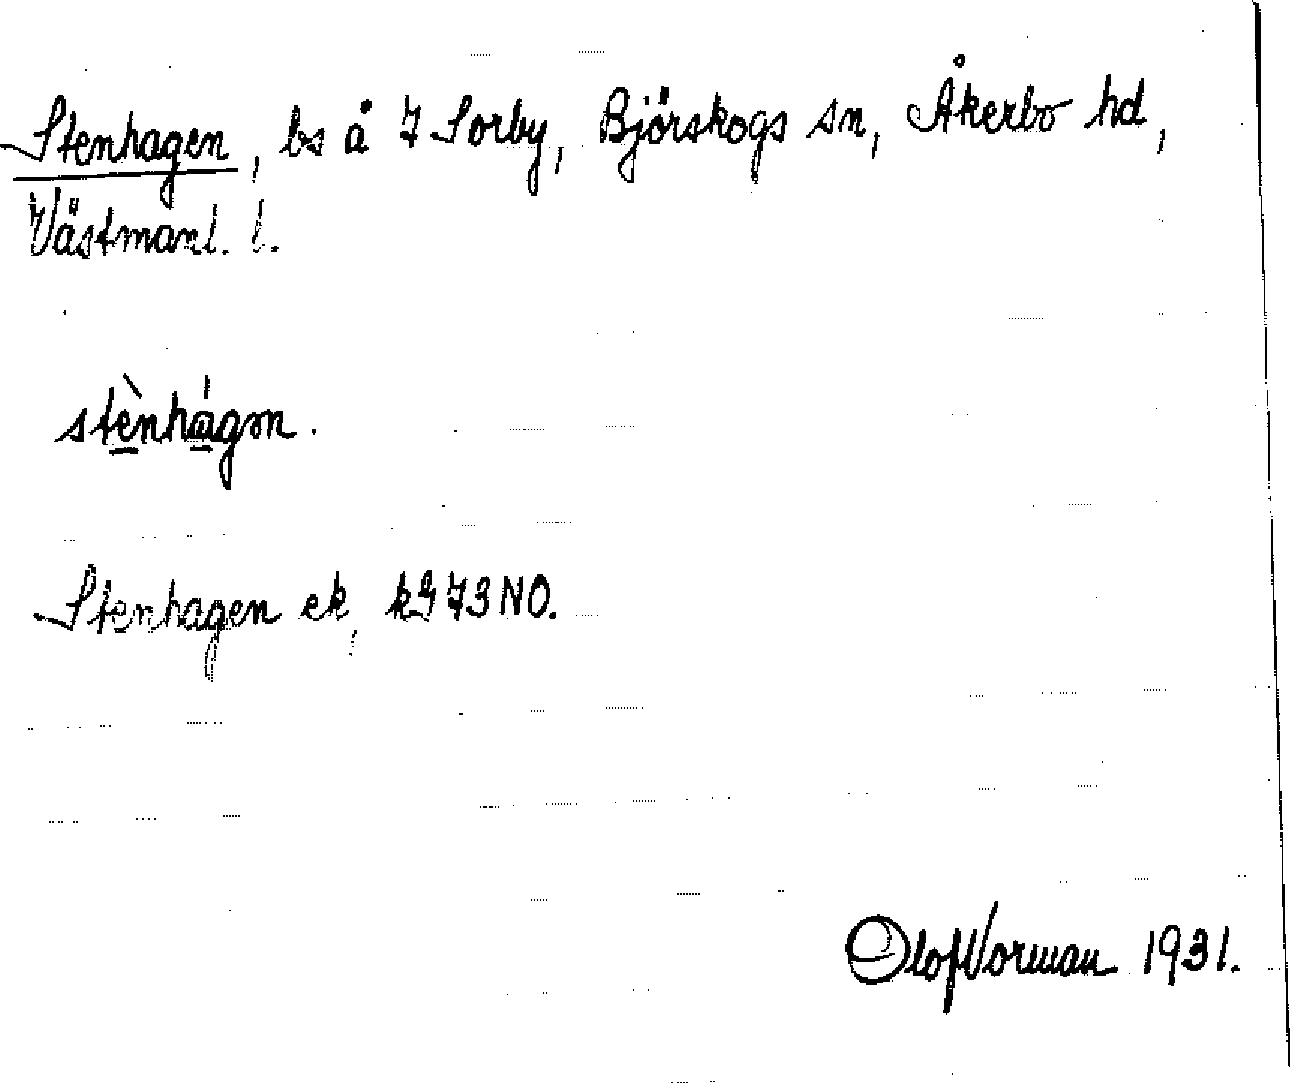 Stenhagen, bs å 7 Sorby, Björskogs sn, Åkerbo hd,
Västmanl. l.
stènhágən.
Stenhagen ek, kG 73 NO.
Olof Norman 1931.